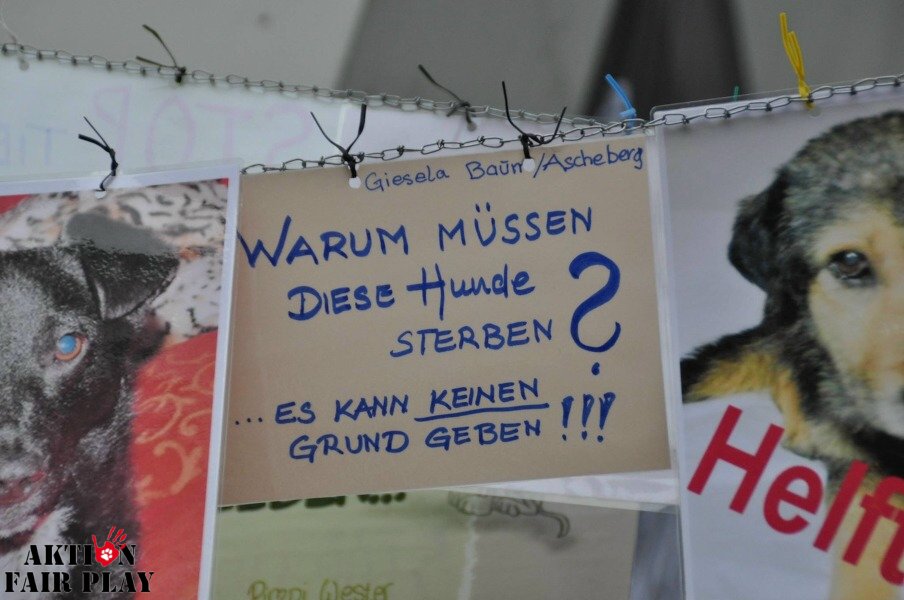 STOP
TIE
Giesela Baum/Ascheberg
WARUM MÜSSEN
DIESE Hunde
STERBEN ?
... ES KANN KEINEN
GRUND GEBEN !!!
Helft
Wester
AKTION
FAIR PLAY